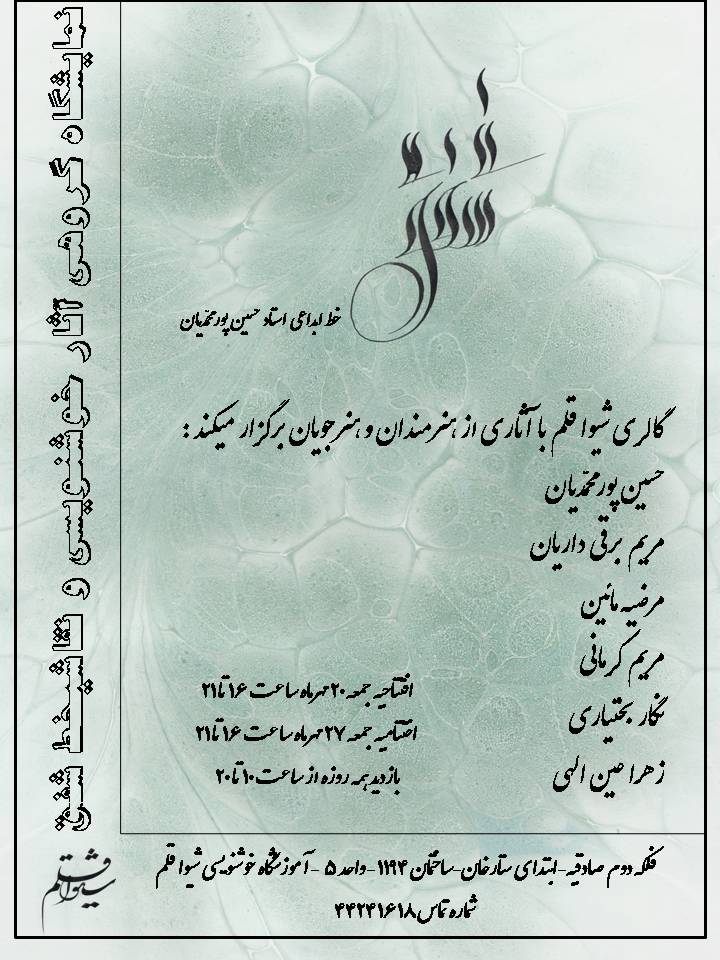 نمایشگاه گروهی آثار خوشنویسی و نقاشیخط شتق
خط ابداعی استاد حسین پورمحمدیان
گالری شیوا قلم با آثاری از هنرمندان و هنرجویان برگزار میکند :
حسین پورمحمدیان
مریم برقی داریان
مرضیه مائین
مریم کرمانی
نگار بختیاری
زهرا عین الهی
افتتاحیه جمعه ۲۰ مهرماه ساعت ۱۶ تا ۲۱
اختتامیه جمعه ۲۷ مهرماه ساعت ۱۶ تا ۲۱
بازدید همه روزه از ساعت ۱۰ تا ۲۰
فلکه دوم صادقیه - ابتدای ستارخان - ساختمان ۱۱۹۴ - واحد ۵ - آموزشگاه خوشنویسی شیوا قلم
شماره تماس ۴۴۲۴۱۶۱۸
شیوا قلم